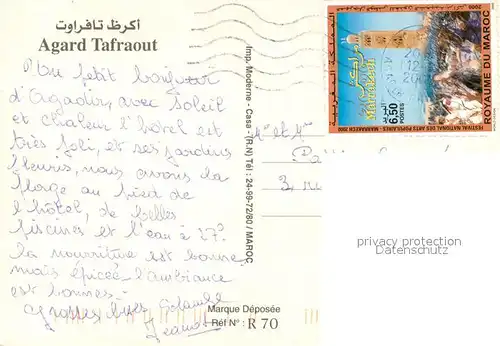 أكرظ تافراوت
Agard Tafraout
Un petit bonjour
d'Agadir, avec soleil
et chaleur l'hôtel est
très joli, et ses jardins
fleuris, nous avons la
plage au pied de
l'hôtel, de belles
piscines et l'eau à 27°.
la nourriture est bonne
mais épicée l'ambiance
est bonnes.
grosses bises
Jean
Imp. Moderne - Casa - (R.N) Tél : 24-99-72/80 / MAROC
Marque Déposée
Réf N° : R 70
المملكة المغربية
2000
مراكش
Marrakech
6,50
POSTES
FESTIVAL NATIONAL DES ARTS POPULAIRES - MARRAKECH 2000
ROYAUME DU MAROC
Mme et Mr
3 rue
privacy protection
Datenschutz